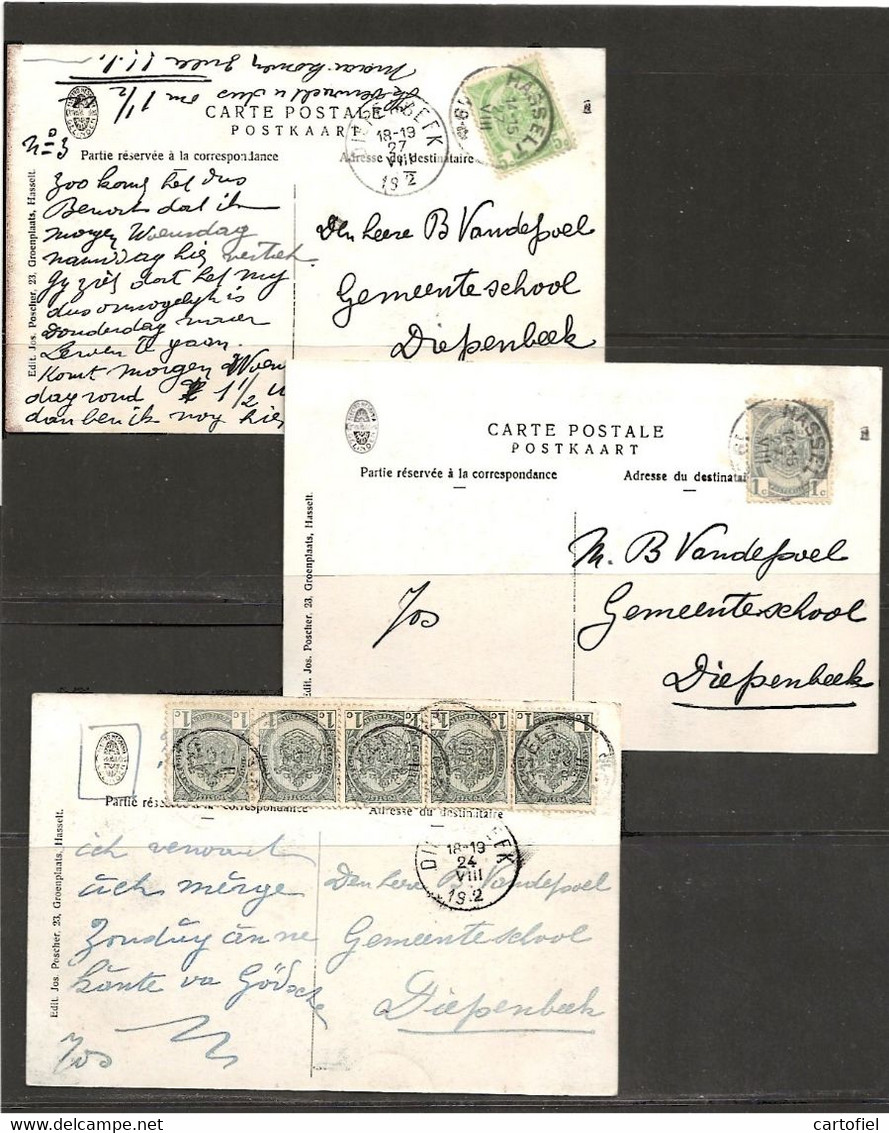 n° 3
CARTE POSTALE
POSTKAART
Partie réservée à la correspondance
Adresse du destinataire
HASSELT
14-15
27
VIII
DIEPENBEEK
18-19
27
VIII
19 2
Edit. Jos. Poscher, 23, Groenplaats, Hasselt.
Zoo komt het dus
dat ik
morgen Woensdag
namiddag hier vertrek.
Gy ziet dat het my
dus onmogelyk is
Donderdag naar
te gaan.
Komt morgen Woens
dag rond 1 1/2 u
dan ben ik nog hier
Den heere B Vandepoel
Gemeenteschool
Diepenbeek
CARTE POSTALE
POSTKAART
Partie réservée à la correspondance
Adresse du destinatai
HASSELT
1c 1c
Edit. Jos. Poscher, 23, Groenplaats, Hasselt.
Jos
M. B Vandepoel
Gemeenteschool
Diepenbeek
1c 1c 1c 1c 1c
Partie réservée à la correspondance
Adresse du destinataire
18-19
24
VIII
19 2
Edit. Jos. Poscher, 23, Groenplaats, Hasselt.
ich verwacht
üch mèrge
Zondúg án ne
kánte va Gödsche
Jos
Den heere B Vandepoel
Gemeenteschool
Diepenbeek
cartofiel